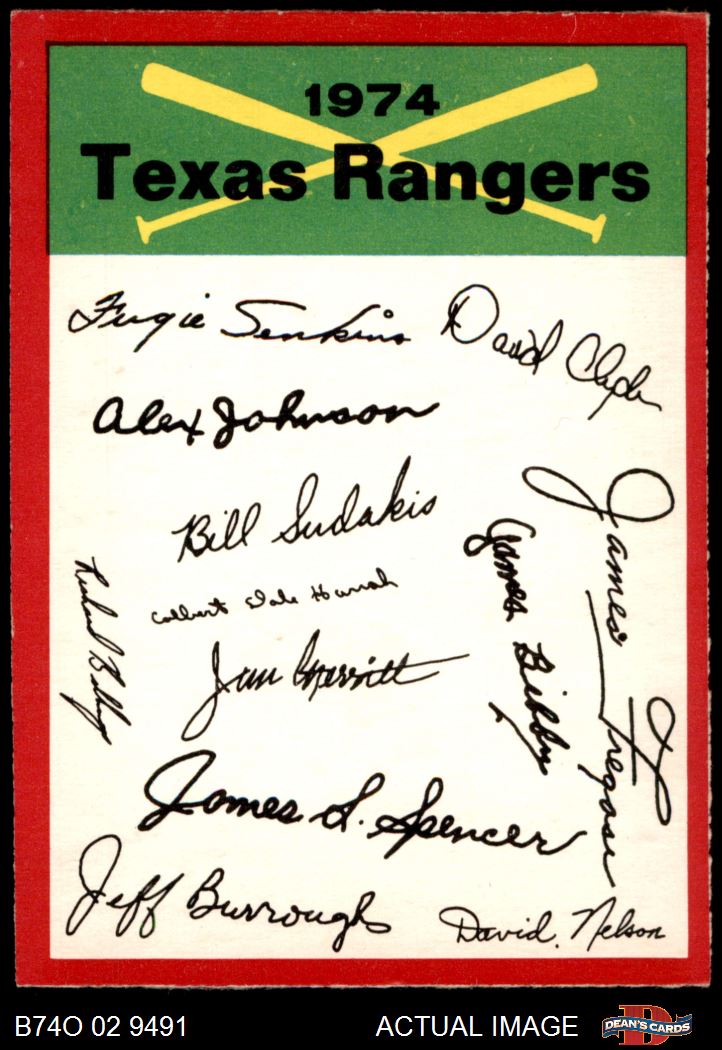 1974
Texas Rangers
Fergie Jenkins
David Clyde
Alex Johnson
Bill Sudakis
James Fregosi
James Bibby
Richard Billings
Colbert Dale Hamrah
Jim Merritt
James L. Spencer
Jeff Burroughs
David. Nelson
B74O 02 9491
ACTUAL IMAGE
D
DEAN'S CARDS